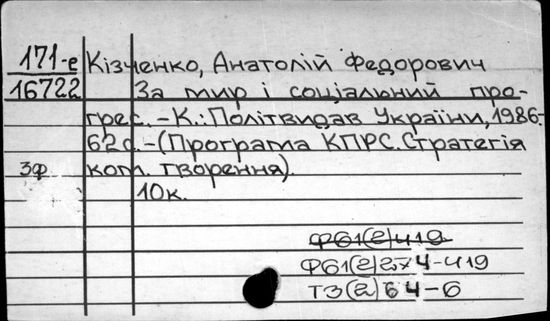 171-е Кізченко, Анатолій Федорович
16722 За мир і соціальний про-
грес. - К.: Політвидав України, 1986.
62с. - (Програма КПРС. Стратегія
3ф ком. творення).
10к.
Ф61(2)419
Ф61(2)274-419
Т3(2)64-6